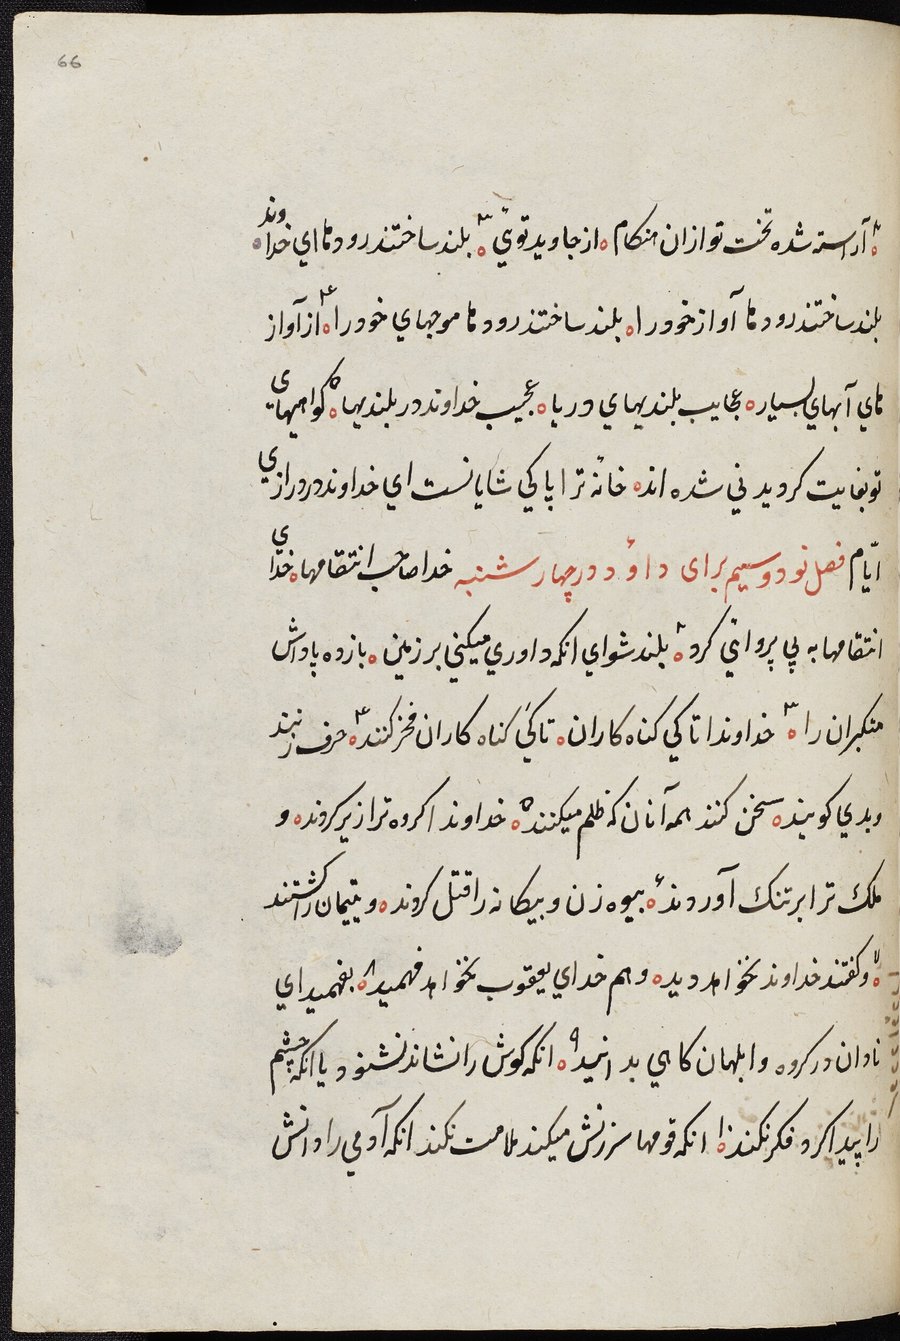 66
۲ ه آراسته شده تخت تو ازان هنکام ه از جاوید توئي ۳ ه بلند ساختند رودها اي خداوند ه
بلند ساختند رودها آواز خود را ه بلند ساختند رودها موجهاي خود را ه ۴ از آواز
هاي آبهاي بسیار ه عجایب بلندیهاي دریا ه عجیب خداوند در بلندیها ه ۵ کواهیهاي
تو بغایت کردیدني شده اند ه خانهٔ ترا پاکي شایانست اي خداوند در درازي
ایّام فصل نود و سیم برای داؤد در چهار شنبه خدا صاحب انتقامها ه خداي
انتقامها به بي پروائي کرد ه ۲ بلند شو اي انکه داوري میکني بر زمین ه بازده پاداش
متکبران را ه ۳ خداوندا تا کي کناه کاران ه تا کي کناه کاران فخر کنند ه ۴ حرف زنند
و بدي کویند ه سخن کنند همه آنان که ظلم میکنند ه ۵ خداوندا کروه ترا زیر کردند ه و
ملك ترا بر تنك آوردند ه ۶ بیوه زن و بیکانه را قتل کردند ه و یتیمان را کشتند
۷ ه و کفتند خداوند نخواهد دید ه و هم خداي یعقوب نخواهد فهمید ه ۸ بفهمید اي
نادان در کروه و ابلهان کاهي بدانید ه ۹ انکه کوش را نشاند نشنود یا انکه چشم
را پیدا کرد فکر نکند ه ۱۰ انکه قومها سرزنش میکند ملامت نکند انکه آدمي را دانش